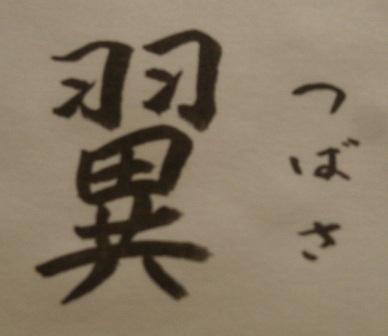 翼
つばさ